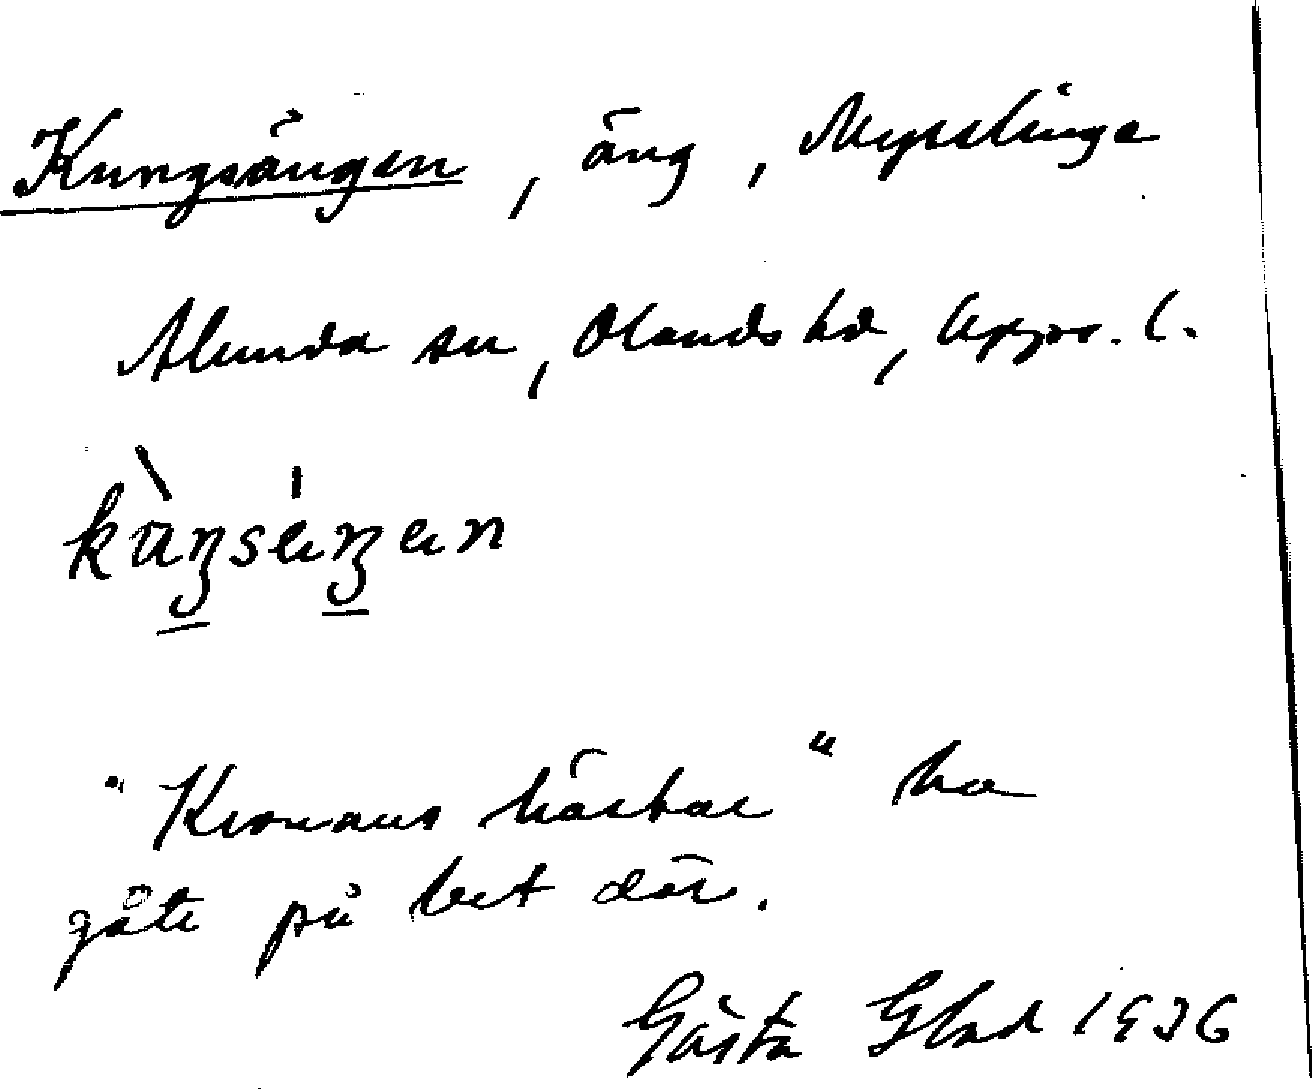 Kungsängen, äng, Mysslinge
Alunda sn, Olands hd, Upps. l.
kùŋséŋen
"Kronans hästar" ha
gått på bet där.
Gösta Glad 1936